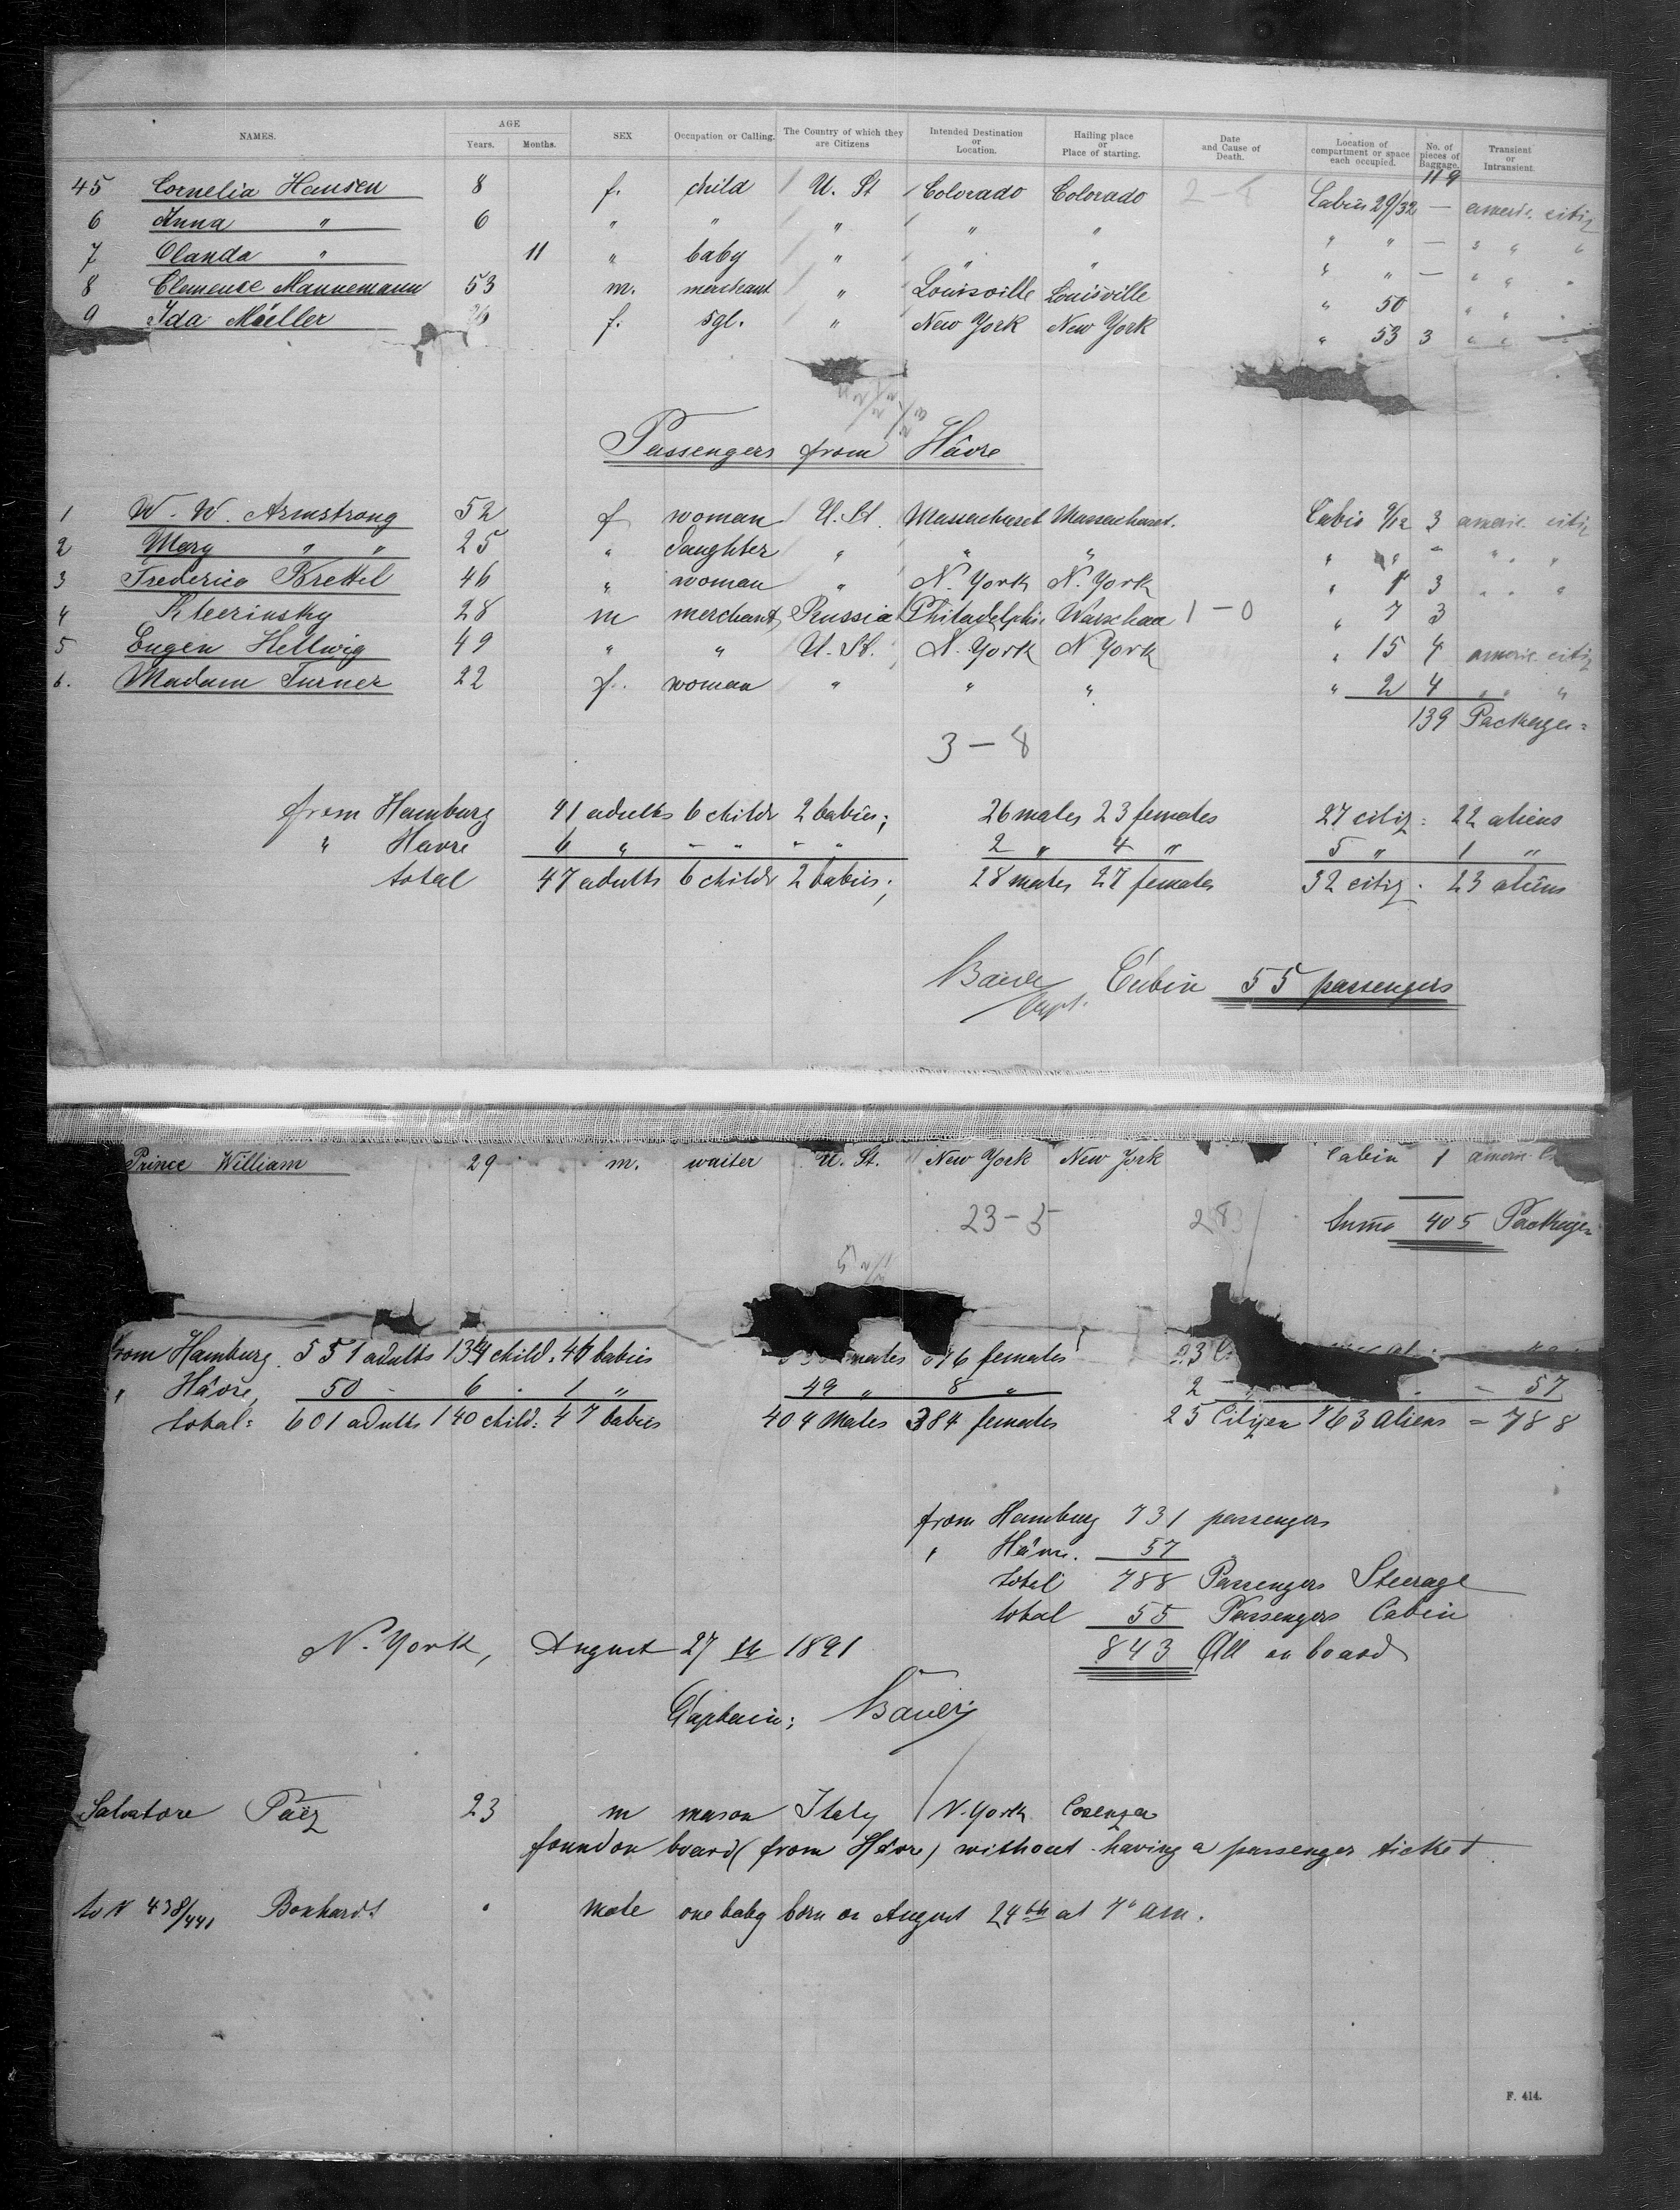 NAMES. AGE Years. Months. SEX Occupation or Calling. The Country of which they are Citizens Intended Destination or Location. Hailing place or Place of starting. Date and Cause of Death. Location of compartment or space each occupied. No. of pieces of Baggage. Transient or Intransient.
119
45 Cornelia Hansen 8 f. child U. St Colorado Colorado 2 - 8 Cabin 29/32 — americ. citiz
6 Anna " 6 " " " " " " " — " " "
7 Olanda " 11 " baby " " " " " — " " "
8 Clemence Mannemann 53 m. merchant " Louisville Louisville " 50 " " "
9 Ida Mäeller f. sgl. " New York New York " 53 3 " " "
Passengers from Hâvre
1 W. W. Armstrong 52 f woman U. St. Massachuset Massachuset. Cabin 9/12 3 americ. citiz
2 Mary " " 25 " daughter " " " " " - " " "
3 Frederica Brettel 46 " woman " N. York N. York " 1 3 " " "
4 Kleerinsky 28 m merchant Russia Philadelphi. Warschau 1 - 0 " 7 3
5 Eugen Hellwig 49 " " U. St. N. York N York " 15 4 americ. citiz
6. Madam Turner 22 f. woman " " " " 2 4 " " "
139 Packages =
3 - 8
from Hamburg 41 adults 6 childr 2 babies; 26 males 23 females 27 citiz = 22 aliens
" Havre 6 " - " " " 2 " 4 " 5 " 1 "
total 47 adults 6 childr 2 babies; 28 males 27 females 32 citiz. 23 aliens
Bauer Capt. Cabin 55 passengers
Prince William 29 m. waiter U. St. New York New York Cabin 1 americ.
23 - 5 283 Summa 405 Packages
from Hamburg. 551 adults 134 child. 46 babies males 376 females 23
" Hâvre, 50 - 6 - 1 " 49 " 8 " 2 - 57
total = 601 adults 140 child: 47 babies 404 Males 384 females 25 Citizen 763 Aliens = 788
from Hamburg 731 passengers
" Hâvre. 57
total 788 Passengers Steerage
total 55 Passengers Cabin
N. York, August 27 th 1891 843 All on board
Captain; Bauer
Salvatore Paëz 23 m mason Italy N. York Cosenza
found on board (from Hâvre) without having a passenger ticket
to N 438/441 Bonhardt " male one baby born on August 24th at 7° am.
F. 414.